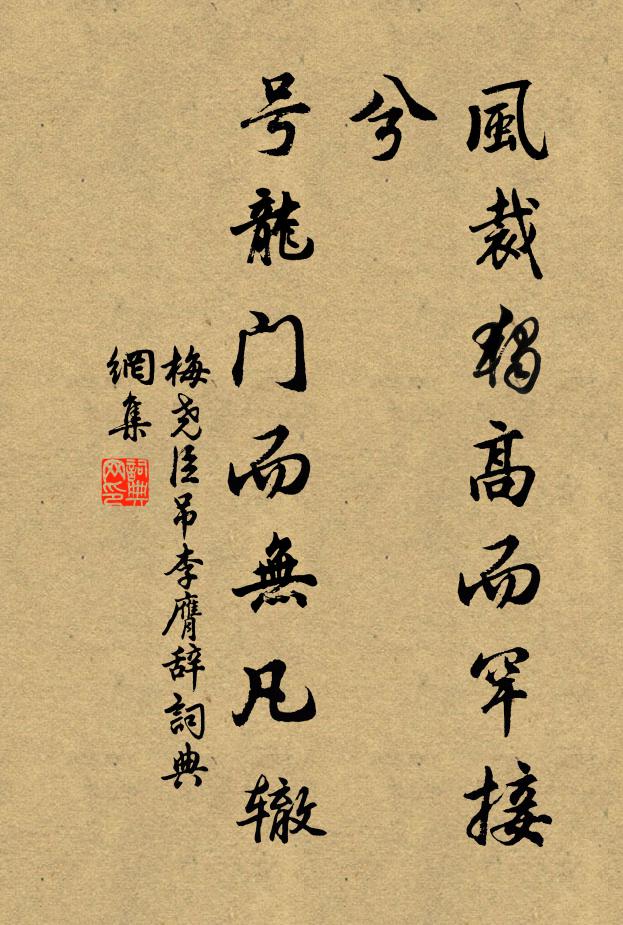 風裁獨高而罕接
兮
号龍门而無凡辙
梅尧臣吊李膺辞詞典
網集
詞典
网印